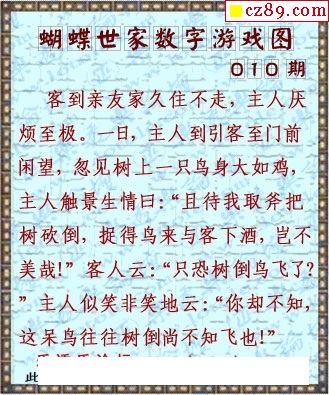 cz89.com
蝴蝶世家数字游戏图
010期
客到亲友家久住不走，主人厌
烦至极。一日，主人到引客至门前
闲望，忽见树上一只鸟身大如鸡，
主人触景生情曰：“且待我取斧把
树砍倒，捉得鸟来与客下酒，岂不
美哉！”客人云：“只恐树倒鸟飞了？
”主人似笑非笑地云：“你却不知，
这呆鸟往往树倒尚不知飞也！”
此